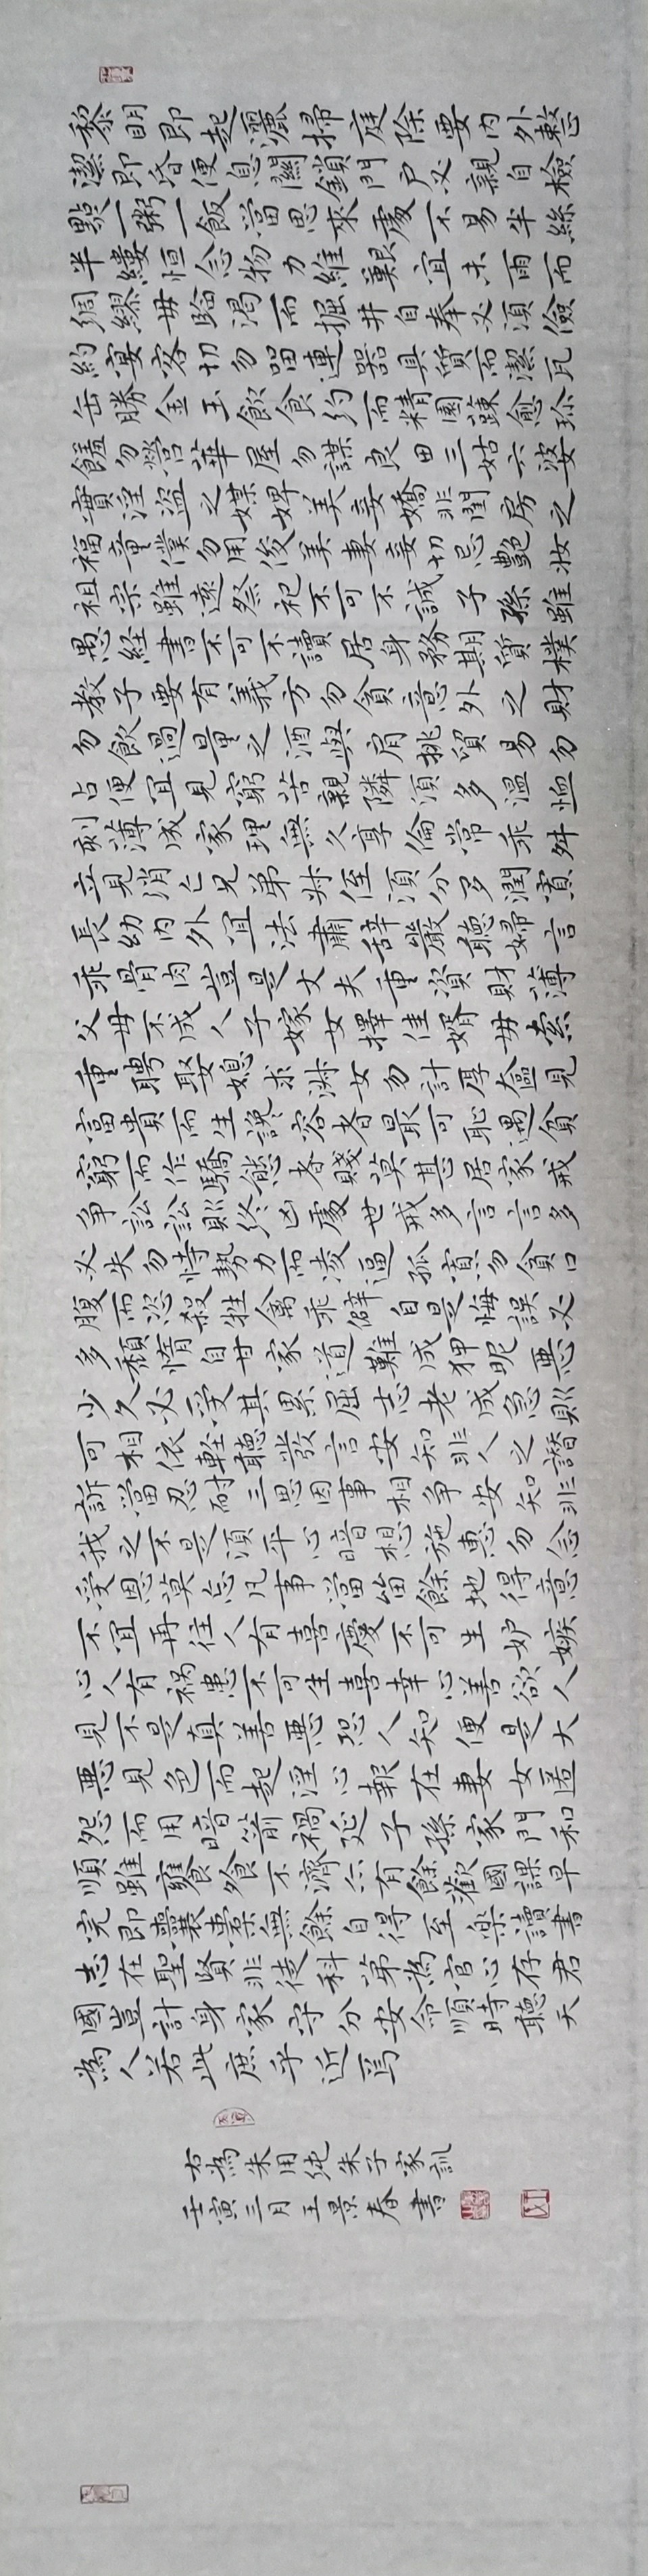 黎明即起灑掃庭除要内外整
潔即昏便息關鎖門户必親自檢
點一粥一飯當思來處不易半絲
半縷恒念物力維艱宜未雨而
綢繆毋臨渴而掘井自奉必須儉
約宴客切勿留連器具質而潔瓦
缶勝金玉飲食約而精園蔬愈珍
饈勿營華屋勿謀良田三姑六婆
實淫盜之媒婢美妾嬌非閨房之
福童僕勿用俊美妻妾切忌艷妝
祖宗雖遠祭祀不可不誠子孫雖
愚經書不可不讀居身務期質樸
教子要有義方勿貪意外之財
勿飲過量之酒與肩挑貿易勿
占便宜見窮苦親隣須多溫恤
刻薄成家理無久享倫常乖舛
立見消亡兄弟叔侄須分多潤寡
長幼内外宜法肅辞嚴聽婦言
乖骨肉豈是丈夫重資財薄
父母不成人子嫁女擇佳婿毋索
重聘娶媳求淑女勿計厚奩見
富貴而生諂容者最可恥遇貧
窮而作驕態者賤莫甚居家戒
爭訟訟則終凶處世戒多言言多
必失勿恃勢力而凌逼孤寡勿貪口
腹而恣殺牲禽乖僻自是悔誤必
多頹惰自甘家道難成狎昵惡
少久必受其累屈志老成急則
可相依輕聽發言安知非人之譖
訴當忍耐三思因事相爭安知非
我之不是須平心暗想施惠勿念
受恩莫忘凡事當留餘地得意
不宜再往人有喜慶不可生妒嫉
心人有禍患不可生喜幸心善欲人
見不是真善惡恐人知便是大
惡見色而起淫心報在妻女匿
怨而用暗箭禍延子孫家門和
順雖饔飧不濟亦有餘歡國課早
完即囊橐無餘自得至樂讀書
志在聖賢非徒科第為官心存君
國豈計身家守分安命順時聽天
為人若此庶乎近焉
右為朱用純朱子家訓
壬寅三月王景春書